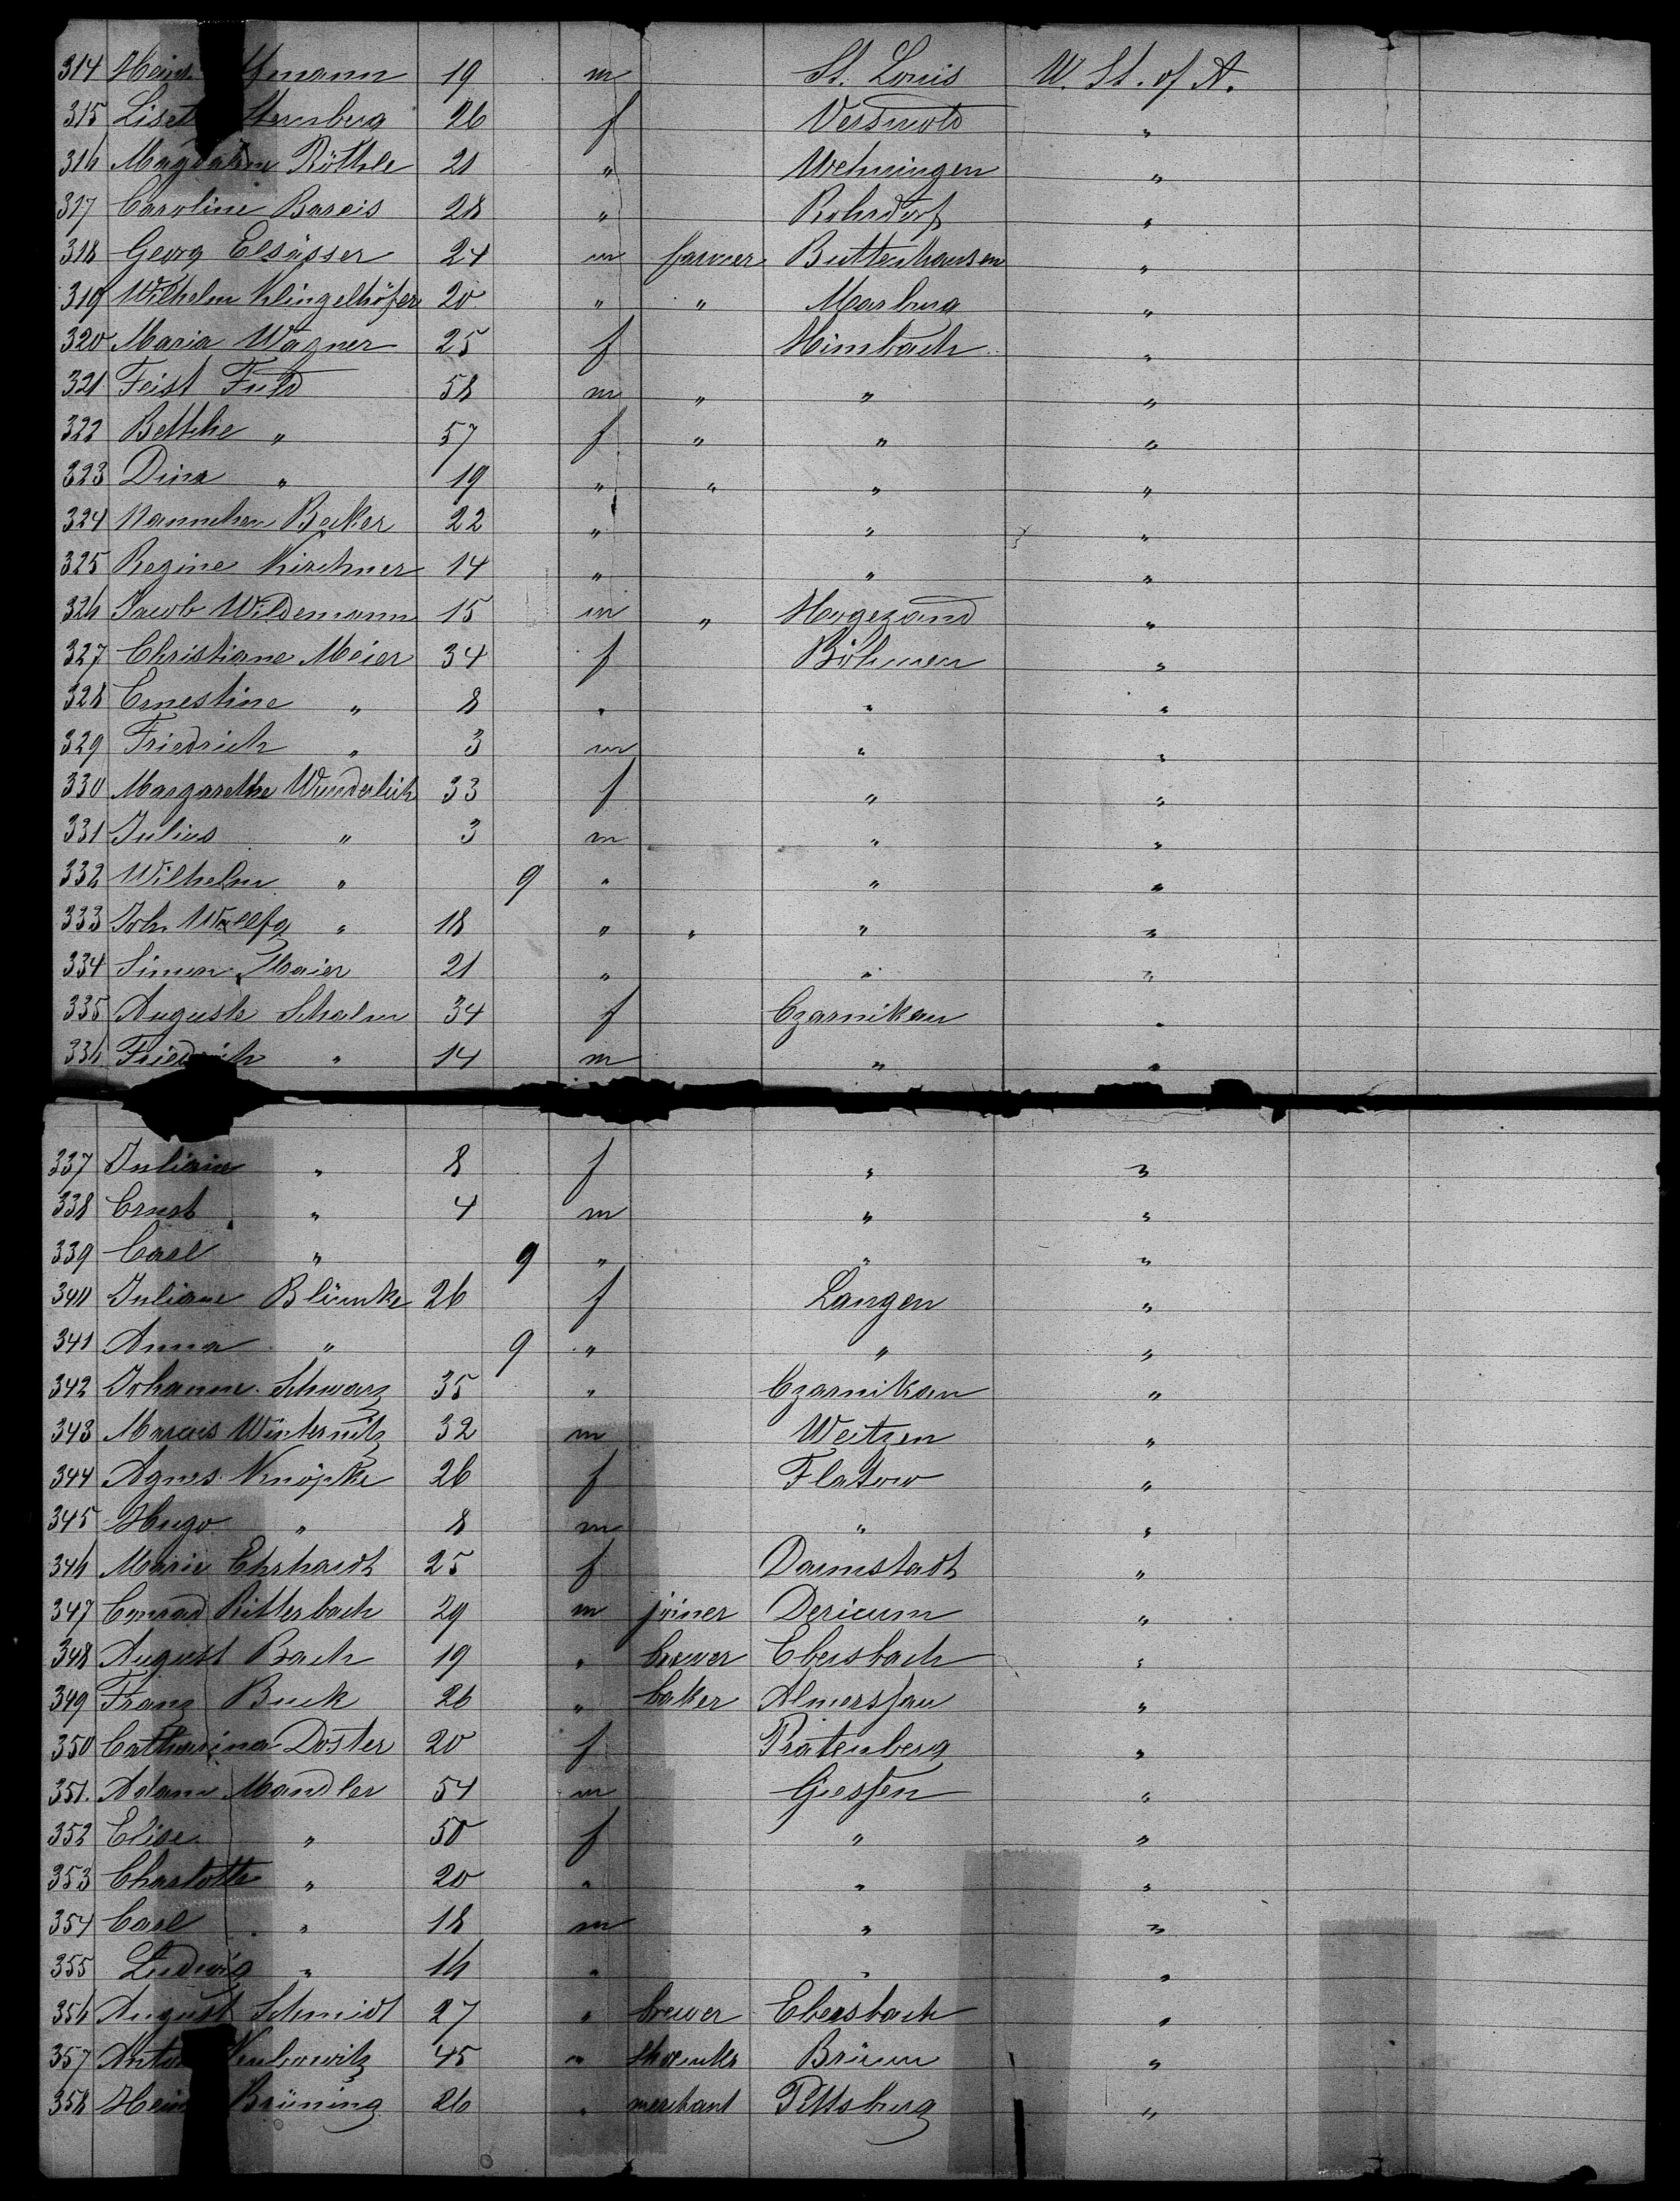 314 Hein. 19 m St. Louis U. St. of A.
315 Liset Sternberg 26 f Versmold "
316 Magdalene Röthle 21 " Wehningen "
317 Caroline Bareis 28 " Rohrdorf "
318 Georg Elsässer 24 m farmer Buttenhausen "
319 Wilhelm Klingelhöfer 20 " " Marburg "
320 Maria Wagner 25 f Himbach "
321 Feist Fuld 58 m " " "
322 Bettche " 57 f " " "
323 Dina " 19 " " " "
324 Nannchen Becker 22 " " "
325 Regine Kirchner 14 " " "
326 Jacob Wildemann 15 m " Hogezand "
327 Christiane Meier 34 f Böhmen "
328 Ernestine " 8 " " "
329 Friedrich " 3 m " "
330 Margarethe Wunderlich 33 f " "
331 Julius " 3 m " "
332 Wilhelm " 9 " " "
333 Joh. Wollfg " 18 " " " "
334 Simon Maier 21 " " "
335 Auguste Schalm 34 f Czarnikau "
336 Friedrich " 14 m " "
337 Juliane " 8 f " "
338 Ernst " 4 m " "
339 Carl " 9 " " "
340 Juliane Blümke 26 f Langen "
341 Anna " 9 " " "
342 Johanne Schwarz 35 " Czarnikau "
343 Marcus Winternitz 32 m Weitzen "
344 Agnes Knöpke 26 f Flatow "
345 Hugo " 8 m " "
346 Marie Ehrhardt 25 f Darmstadt "
347 Conrad Ritterbach 29 m joiner Dericum "
348 August Bach 19 " brewer Ebersbach "
349 Franz Buck 26 " baker Almersfau "
350 Catharina Doster 20 f Pratenberg "
351. Adam Mandler 54 m Giessen "
352 Elise " 50 f " "
353 Charlotte " 20 " " "
354 Carl " 18 m " "
355 Ludwig " 16 " " "
356 August Schmidt 27 " brewer Ebersbach "
357 Anton 45 " shoemkr Brünn "
358 Hein Brüning 26 " merchant Pittsburg "